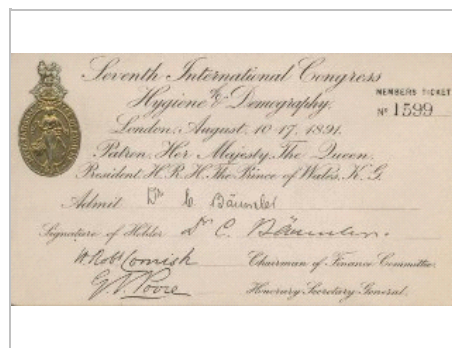 Seventh International Congress
of
Hygiene & Demography.
MEMBERS TICKET
No 1599
London, August, 10-17, 1891.
Patron, Her Majesty, The Queen.
President, H.R.H. The Prince of Wales, K.G.
Admit Dr C. Bäumler
Signature of Holder Dr C. Bäumler.
W Robt Cornish Chairman of Finance Committee.
G. V. Poore Honorary Secretary General.